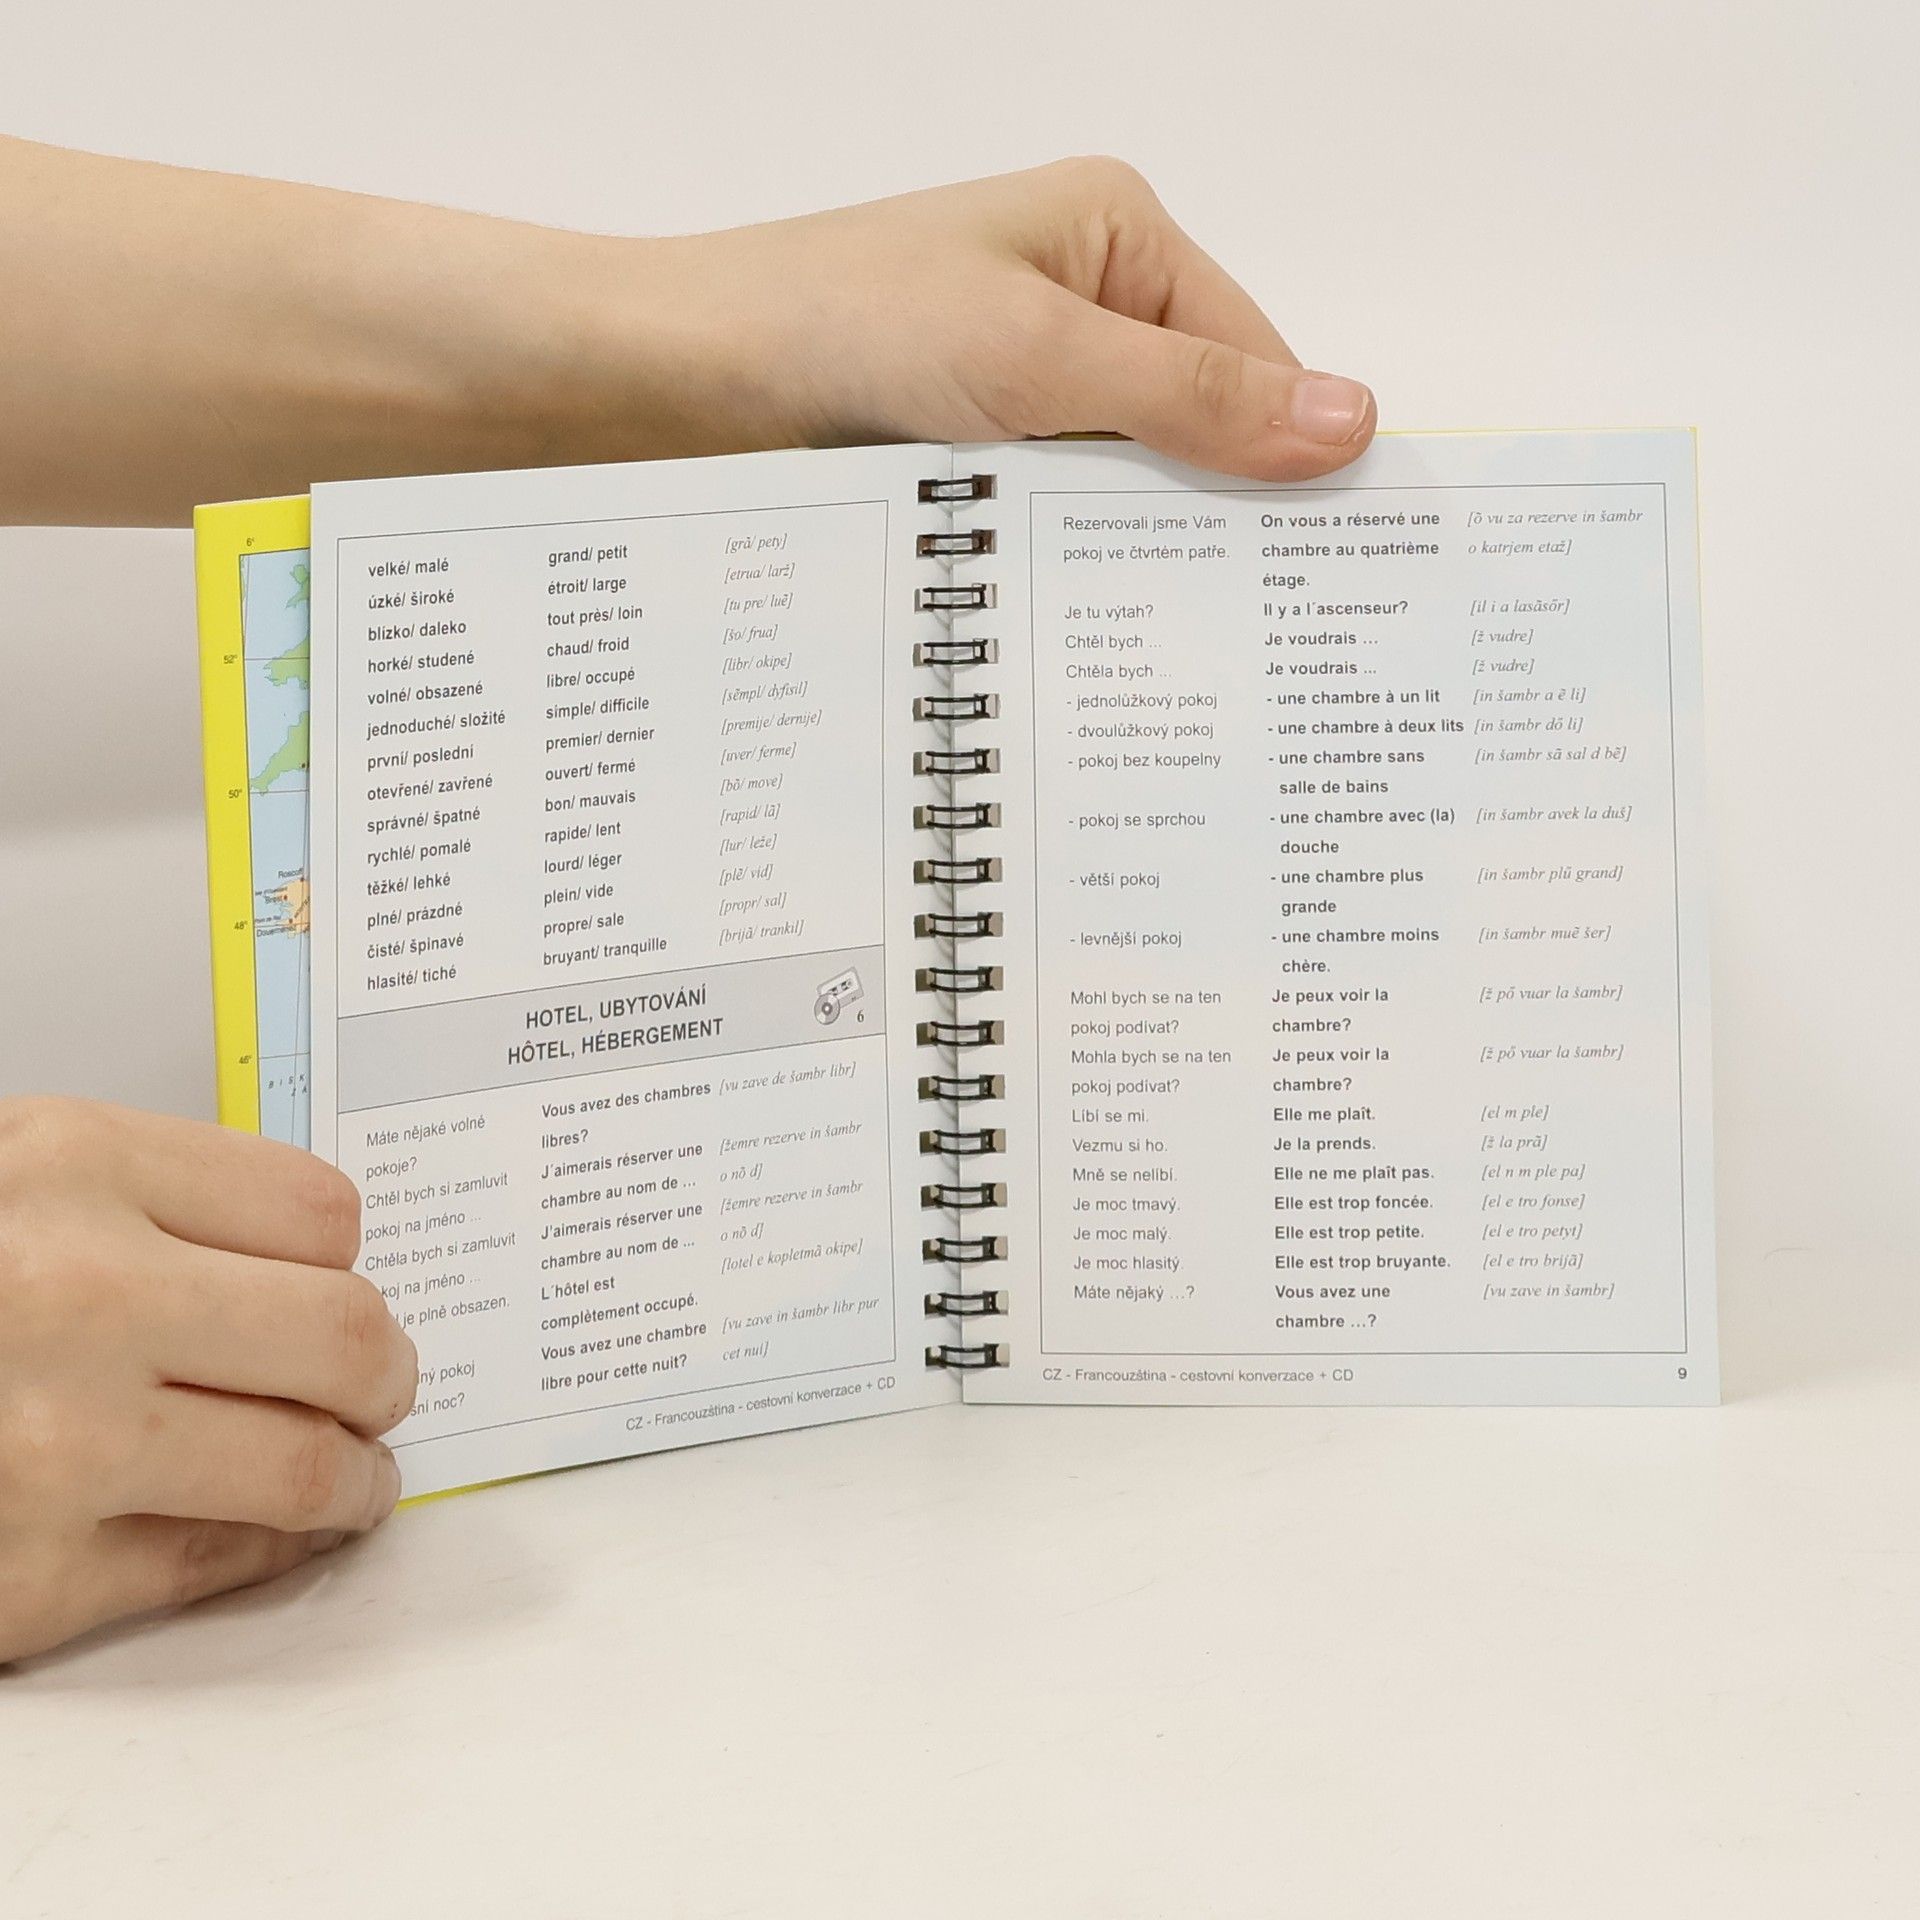 6°
52°
50°
48°
46°
Roscoff
Brest
B I S K
Z Á
velké/ malé grand/ petit [grã/ pety]
úzké/ široké étroit/ large [etrua/ larž]
blízko/ daleko tout près/ loin [tu pre/ luẽ]
horké/ studené chaud/ froid [šo/ frua]
volné/ obsazené libre/ occupé [libr/ okipe]
jednoduché/ složité simple/ difficile [sẽmpl/ dyfisil]
první/ poslední premier/ dernier [premije/ dernije]
otevřené/ zavřené ouvert/ fermé [uver/ ferme]
správné/ špatné bon/ mauvais [bõ/ move]
rychlé/ pomalé rapide/ lent [rapid/ lã]
těžké/ lehké lourd/ léger [lur/ leže]
plné/ prázdné plein/ vide [plẽ/ vid]
čisté/ špinavé propre/ sale [propr/ sal]
hlasité/ tiché bruyant/ tranquille [brijã/ trankil]
HOTEL, UBYTOVÁNÍ
HÔTEL, HÉBERGEMENT
6
Máte nějaké volné Vous avez des chambres [vu zave de šambr libr]
pokoje? libres?
Chtěl bych si zamluvit J´aimerais réserver une [žemre rezerve in šambr
pokoj na jméno ... chambre au nom de ... o nõ d]
Chtěla bych si zamluvit J'aimerais réserver une [žemre rezerve in šambr
koj na jméno ... chambre au nom de ... o nõ d]
je plně obsazen. L´hôtel est [lotel e kopletmã okipe]
complètement occupé.
ný pokoj Vous avez une chambre [vu zave in šambr libr pur
sní noc? libre pour cette nuit? cet nui]
CZ - Francouzština - cestovní konverzace + CD
Rezervovali jsme Vám On vous a réservé une [õ vu za rezerve in šambr
pokoj ve čtvrtém patře. chambre au quatrième o katrjem etaž]
étage.
Je tu výtah? Il y a l´ascenseur? [il i a lasãsőr]
Chtěl bych ... Je voudrais ... [ž vudre]
Chtěla bych ... Je voudrais ... [ž vudre]
- jednolůžkový pokoj - une chambre à un lit [in šambr a ẽ li]
- dvoulůžkový pokoj - une chambre à deux lits [in šambr dő li]
- pokoj bez koupelny - une chambre sans [in šambr sã sal d bẽ]
salle de bains
- pokoj se sprchou - une chambre avec (la) [in šambr avek la duš]
douche
- větší pokoj - une chambre plus [in šambr plű grand]
grande
- levnější pokoj - une chambre moins [in šambr muẽ šer]
chère.
Mohl bych se na ten Je peux voir la [ž pő vuar la šambr]
pokoj podívat? chambre?
Mohla bych se na ten Je peux voir la [ž pő vuar la šambr]
pokoj podívat? chambre?
Líbí se mi. Elle me plaît. [el m ple]
Vezmu si ho. Je la prends. [ž la prã]
Mně se nelíbí. Elle ne me plaît pas. [el n m ple pa]
Je moc tmavý. Elle est trop foncée. [el e tro fonse]
Je moc malý. Elle est trop petite. [el e tro petyt]
Je moc hlasitý. Elle est trop bruyante. [el e tro brijã]
Máte nějaký ...? Vous avez une [vu zave in šambr]
chambre ...?
CZ - Francouzština - cestovní konverzace + CD 9